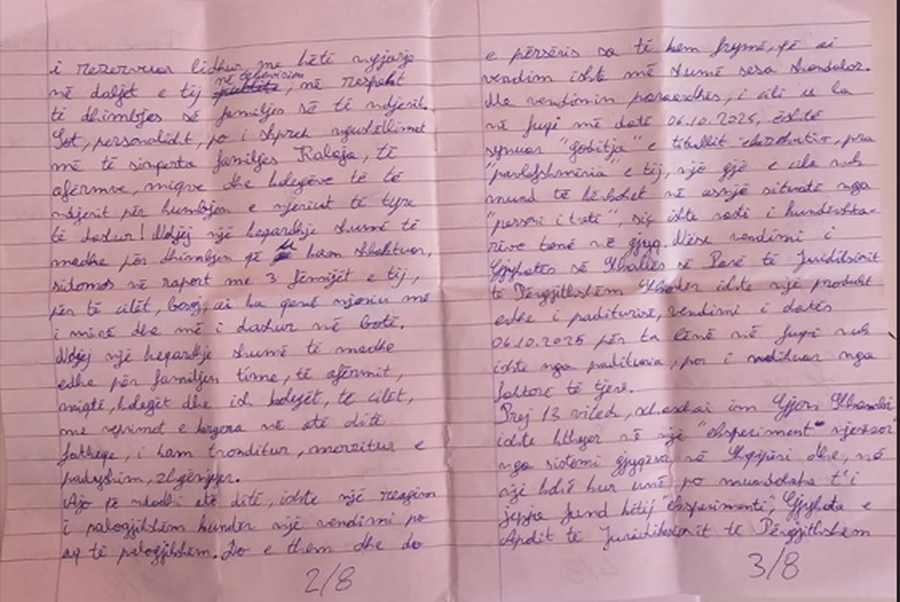 i rezervuar lidhur me këtë ngjarje
në daljet e tij në televizion, në respekt
të dhimbjes së familjes së të ndjerit.
Sot, personalisht, po i shpreh ngushëllimet
më të sinqerta familjes Kalaja, të
afërmve, miqve dhe kolegëve të të
ndjerit për humbjen e njeriut të tyre
të dashur! Ndjej një keqardhje shumë të
madhe për dhimbjen që u kam shkaktuar,
sidomos në raport me 3 fëmijët e tij,
për të cilët, besoj, ai ka qenë njeriu më
i mirë dhe më i dashur në botë.
Ndjej një keqardhje shumë të madhe
edhe për familjen time, të afërmit,
miqtë, kolegët dhe ish kolegët, të cilët,
me veprimet e kryera në atë ditë
fatkeqe, i kam tronditur, mërzitur e
padyshim, zhgënjyer.
Ajo që ndodhi atë ditë, ishte një reagim
i palogjikshëm kundër një vendimi po
aq të palogjikshëm. Do e them dhe do
2/8
e përsëris sa të kem frymë, që ai
vendim ishte më shumë sesa skandaloz.
Me vendimin paraardhës, i cili u la
në fuqi më datë 06.10.2025, është
synuar "goditja" e titullit ekzekutiv, pra
"pavlefshmëria" e tij, një gjë e cila nuk
mund të kërkohet në asnjë situatë nga
"personi i tretë", siç ishte rasti i kundërshta-
rëve tanë në gjyq. Nëse vendimi i
Gjykatës së Shkallës së Parë të Juridiksionit
të Përgjithshëm Shkodër ishte një produkt
edhe i paditurisë, vendimi i datës
06.10.2025 për ta lënë në fuqi nuk
ishte nga padituria, por i ndikuar nga
faktorë të tjerë.
Prej 13 vitesh,
ishte kthyer në një "eksperiment" njerëzor
nga sistemi gjyqësor në Shqipëri dhe, në
një kohë kur unë, po mundohesha t'i
jepja fund këtij "eksperimenti", Gjykata e
Apelit të Juridiksionit të Përgjithshëm
3/8